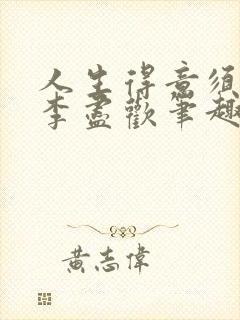 人生得意須
李盡歡筆趣
黃志偉